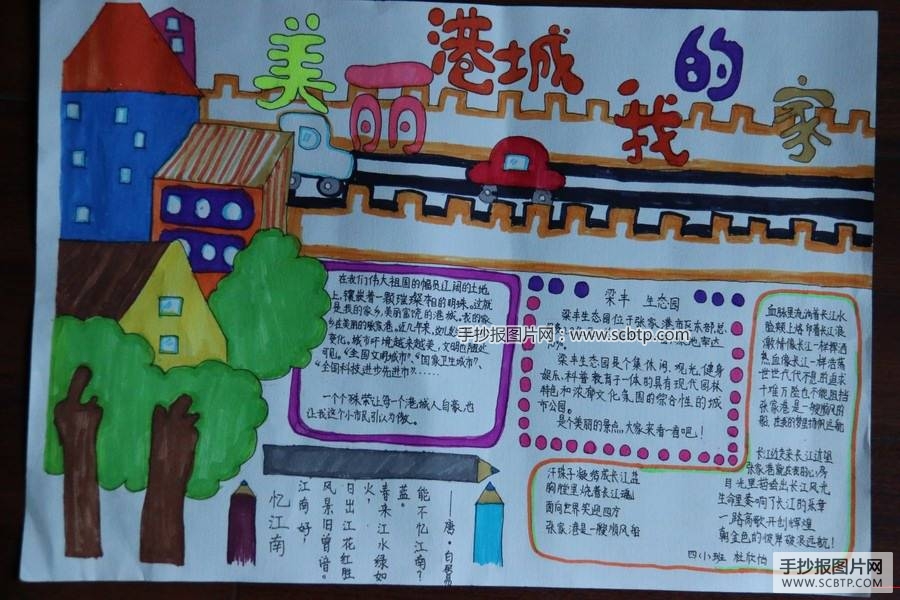 美丽港城 我的家
在我们伟大祖国的幅员辽阔的土地
上,镶嵌着一颗璀璨的明珠。这就
是我的家乡,美丽富饶的港城。我的家
乡是美丽的张家港。近几年来,
变化。城市环境越来越美,文明也随处
可见。"全国文明城市"、"国家卫生城市"、
"全国科技进步先进市"……
一个个殊荣让每一个港城人自豪,也
让我这个小市民引以为傲。
梁丰 生态园
梁丰生态园位于张家港市区东部,总
梁丰生态园是个集休闲、观光、健身
娱乐、科普教育于一体的具有现代园林
特色和浓厚文化氛围的综合性的城
市公园。
是个美丽的景点,大家来看一看吧!
血脉里流淌着长江水
脸颊上烙印着长江浪
激情像长江一样挥洒
热血像长江一样活荡
世世代代不息的追求
十难万险也不能阻挡
张家港是一艘顺风的
船
长江边走来长江边唱
目光里招会出长江风光
生命里奏响了长江的乐章
一路高歌开创辉煌
朝金色的彼岸破浪远航!
汗珠子凝结成长江益
胸膛里烧着长江魂
面向世界笑迎四方
张家港是一艘顺风船
忆江南
江南好,
风景旧曾谙。
日出江花红胜
火,
春来江水绿如
蓝。
能不忆江南?
——唐·白居易
四小班 桂欣怡
手抄报图片网 www.scbtp.com
手抄报图片网
WWW.SCBTP.COM